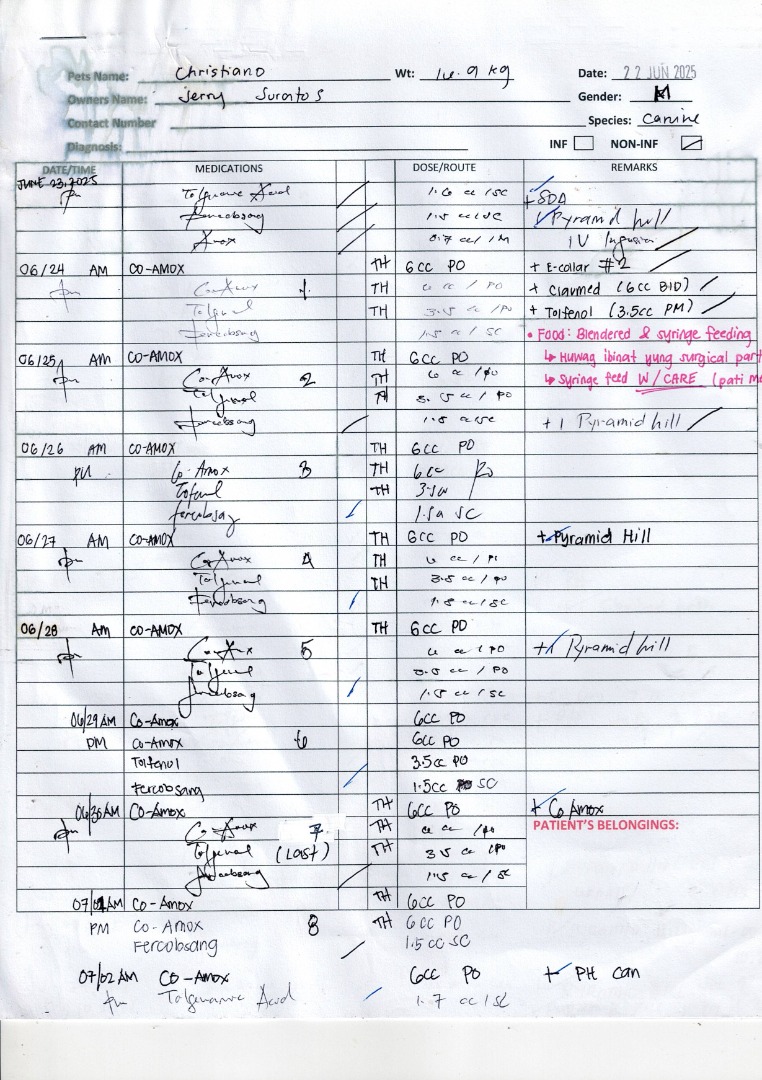 Pets Name: Christiano Wt: 14.9 kg Date: 22 JUN 2025
Owners Name: Jerry Suratos Gender: M
Contact Number Species: Canine
Diagnosis: INF NON-INF
DATE/TIME MEDICATIONS DOSE/ROUTE REMARKS
JUNE 23, 2025 pm Acid 1.6 cc / SC + SDA
Fercobsang 1.5 cc / SC Pyramid hill
Amox 0.7 cc / IM IV Infusion
06/24 AM CO-AMOX TH 6CC PO + E-collar #2
pm Co-Amox 1 TH 6 cc / PO + Clavmed (6cc BID)
Tolfenol TH 3.5 cc / PO + Tolfenol (3.5cc PM)
Fercobsang 1.5 cc / SC • Food: Blendered & syringe feeding
06/25 AM CO-AMOX TH 6CC PO ↳ Huwag ibinat yung surgical part
pm Co-Amox 2 TH 6 cc / PO ↳ Syringe feed W/CARE (pati
Tolfenol TH 3.5 cc / PO
Fercobsang 1.5 cc / SC +1 Pyramid hill
06/26 AM CO-AMOX TH 6CC PO
PM Co-Amox 3 TH 6cc PO
TH 3.5
Fercobsang SC
06/27 AM CO-AMOX TH 6CC PO + Pyramid Hill
pm Co-Amox 4 TH 6 cc / PO
Tolfenol TH 3.5 cc / PO
Fercobsang 1.5 cc / SC
06/28 AM CO-AMOX TH 6CC PO
pm Co-Amox 5 6 cc / PO +1 Pyramid hill
Tolfenol 3.5 cc / PO
Fercobsang 1.5 cc / SC
06/29 AM Co-Amox 6CC PO
PM Co-Amox 6 6CC PO
Tolfenol 3.5cc PO
Fercobsang 1.5cc SC
06/30 AM Co-Amox TH 6CC PO + Co Amox
pm Co-Amox 7 TH 6 cc / PO PATIENT'S BELONGINGS:
Tolfenol (LAST) TH 3.5 cc / PO
Fercobsang 1.5 cc / SC
07/01 AM Co-Amox TH 6CC PO
PM Co-Amox 8 TH 6CC PO
Fercobsang 1.5cc SC
07/02 AM CO-AMOX 6CC PO + PH can
pm Acid 1.7 cc / SC